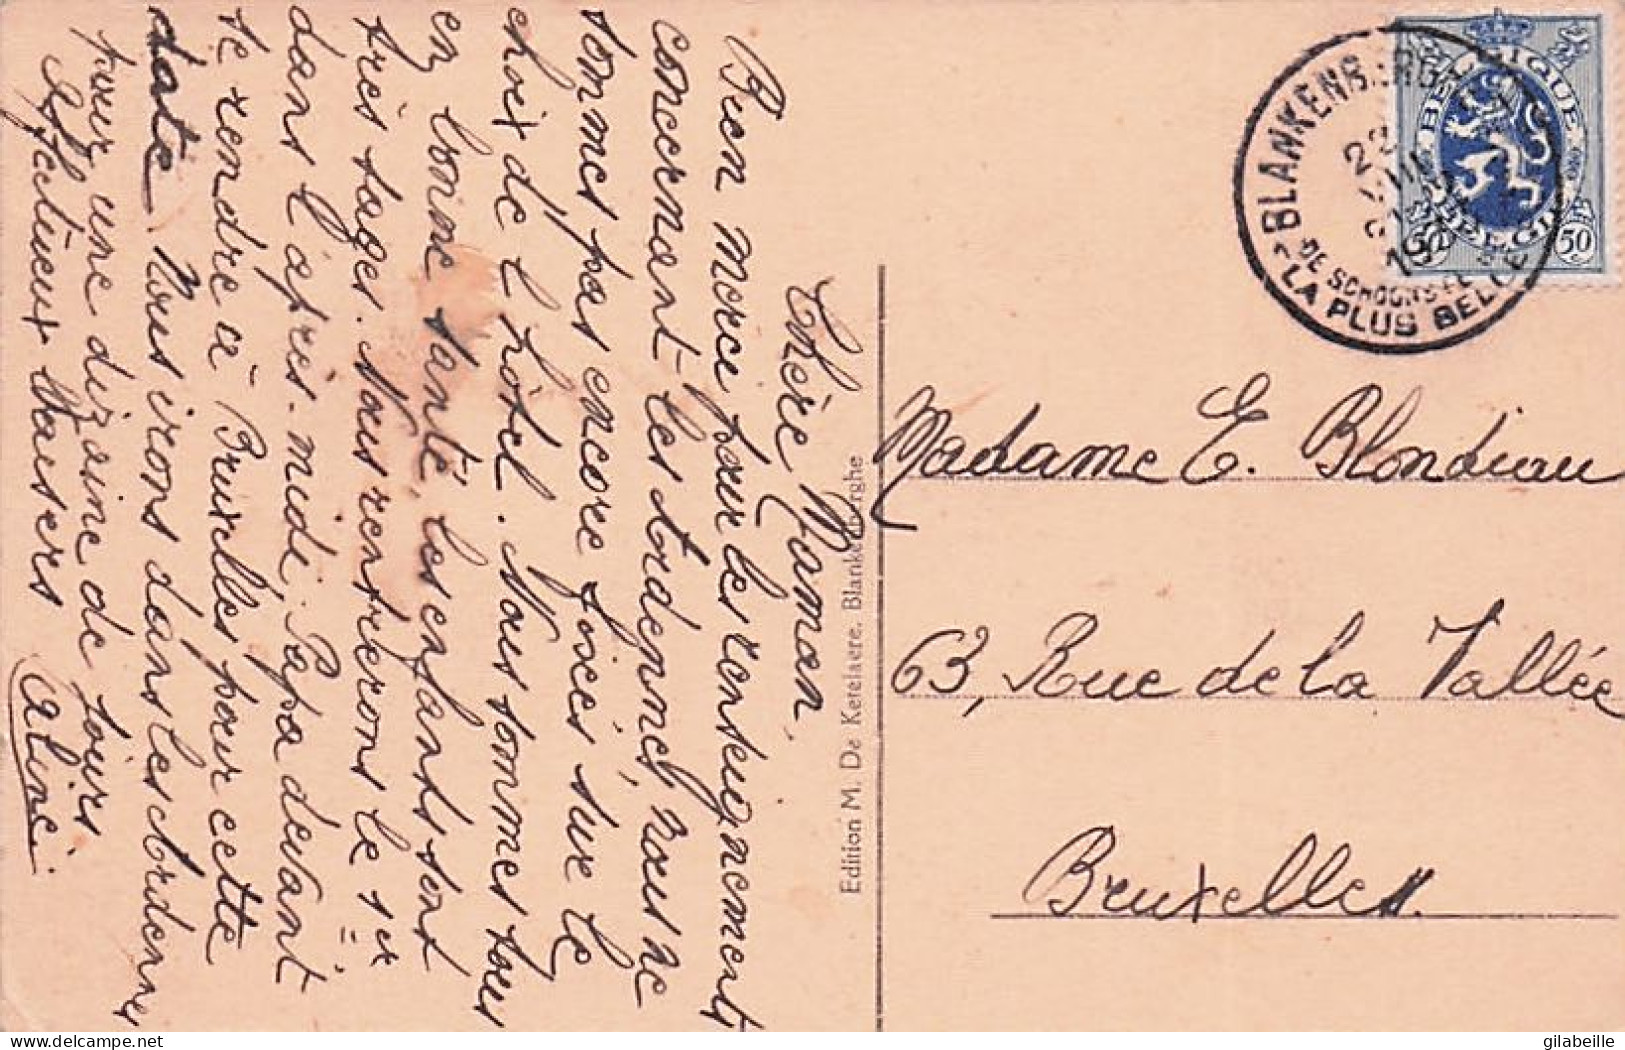 Chère Maman,
Bien merci pour les renseignements
concernant les Ardennes, nous ne
sommes pas encore fixés sur le
choix de l'hôtel. Nous sommes tous
en bonne santé, les enfants sont
très sages. Nous rentrerons le 1er
dans l'après-midi, Papa devant
se rendre à Bruxelles pour cette
date. Nous irons dans les Ardennes
pour une dizaine de jours.
Affectueux baisers
Aline
Edition M. De Ketelaere, Blankenberghe
BLANKENBERGHE
23
VIII
19
DE SCHOONSTE
LA PLUS BELLE
BELGIQUE
BELGIE
50 50
Madame E. Blondiau
63, Rue de la Vallée
Bruxelles.
www.delcampe.net
gilabeille